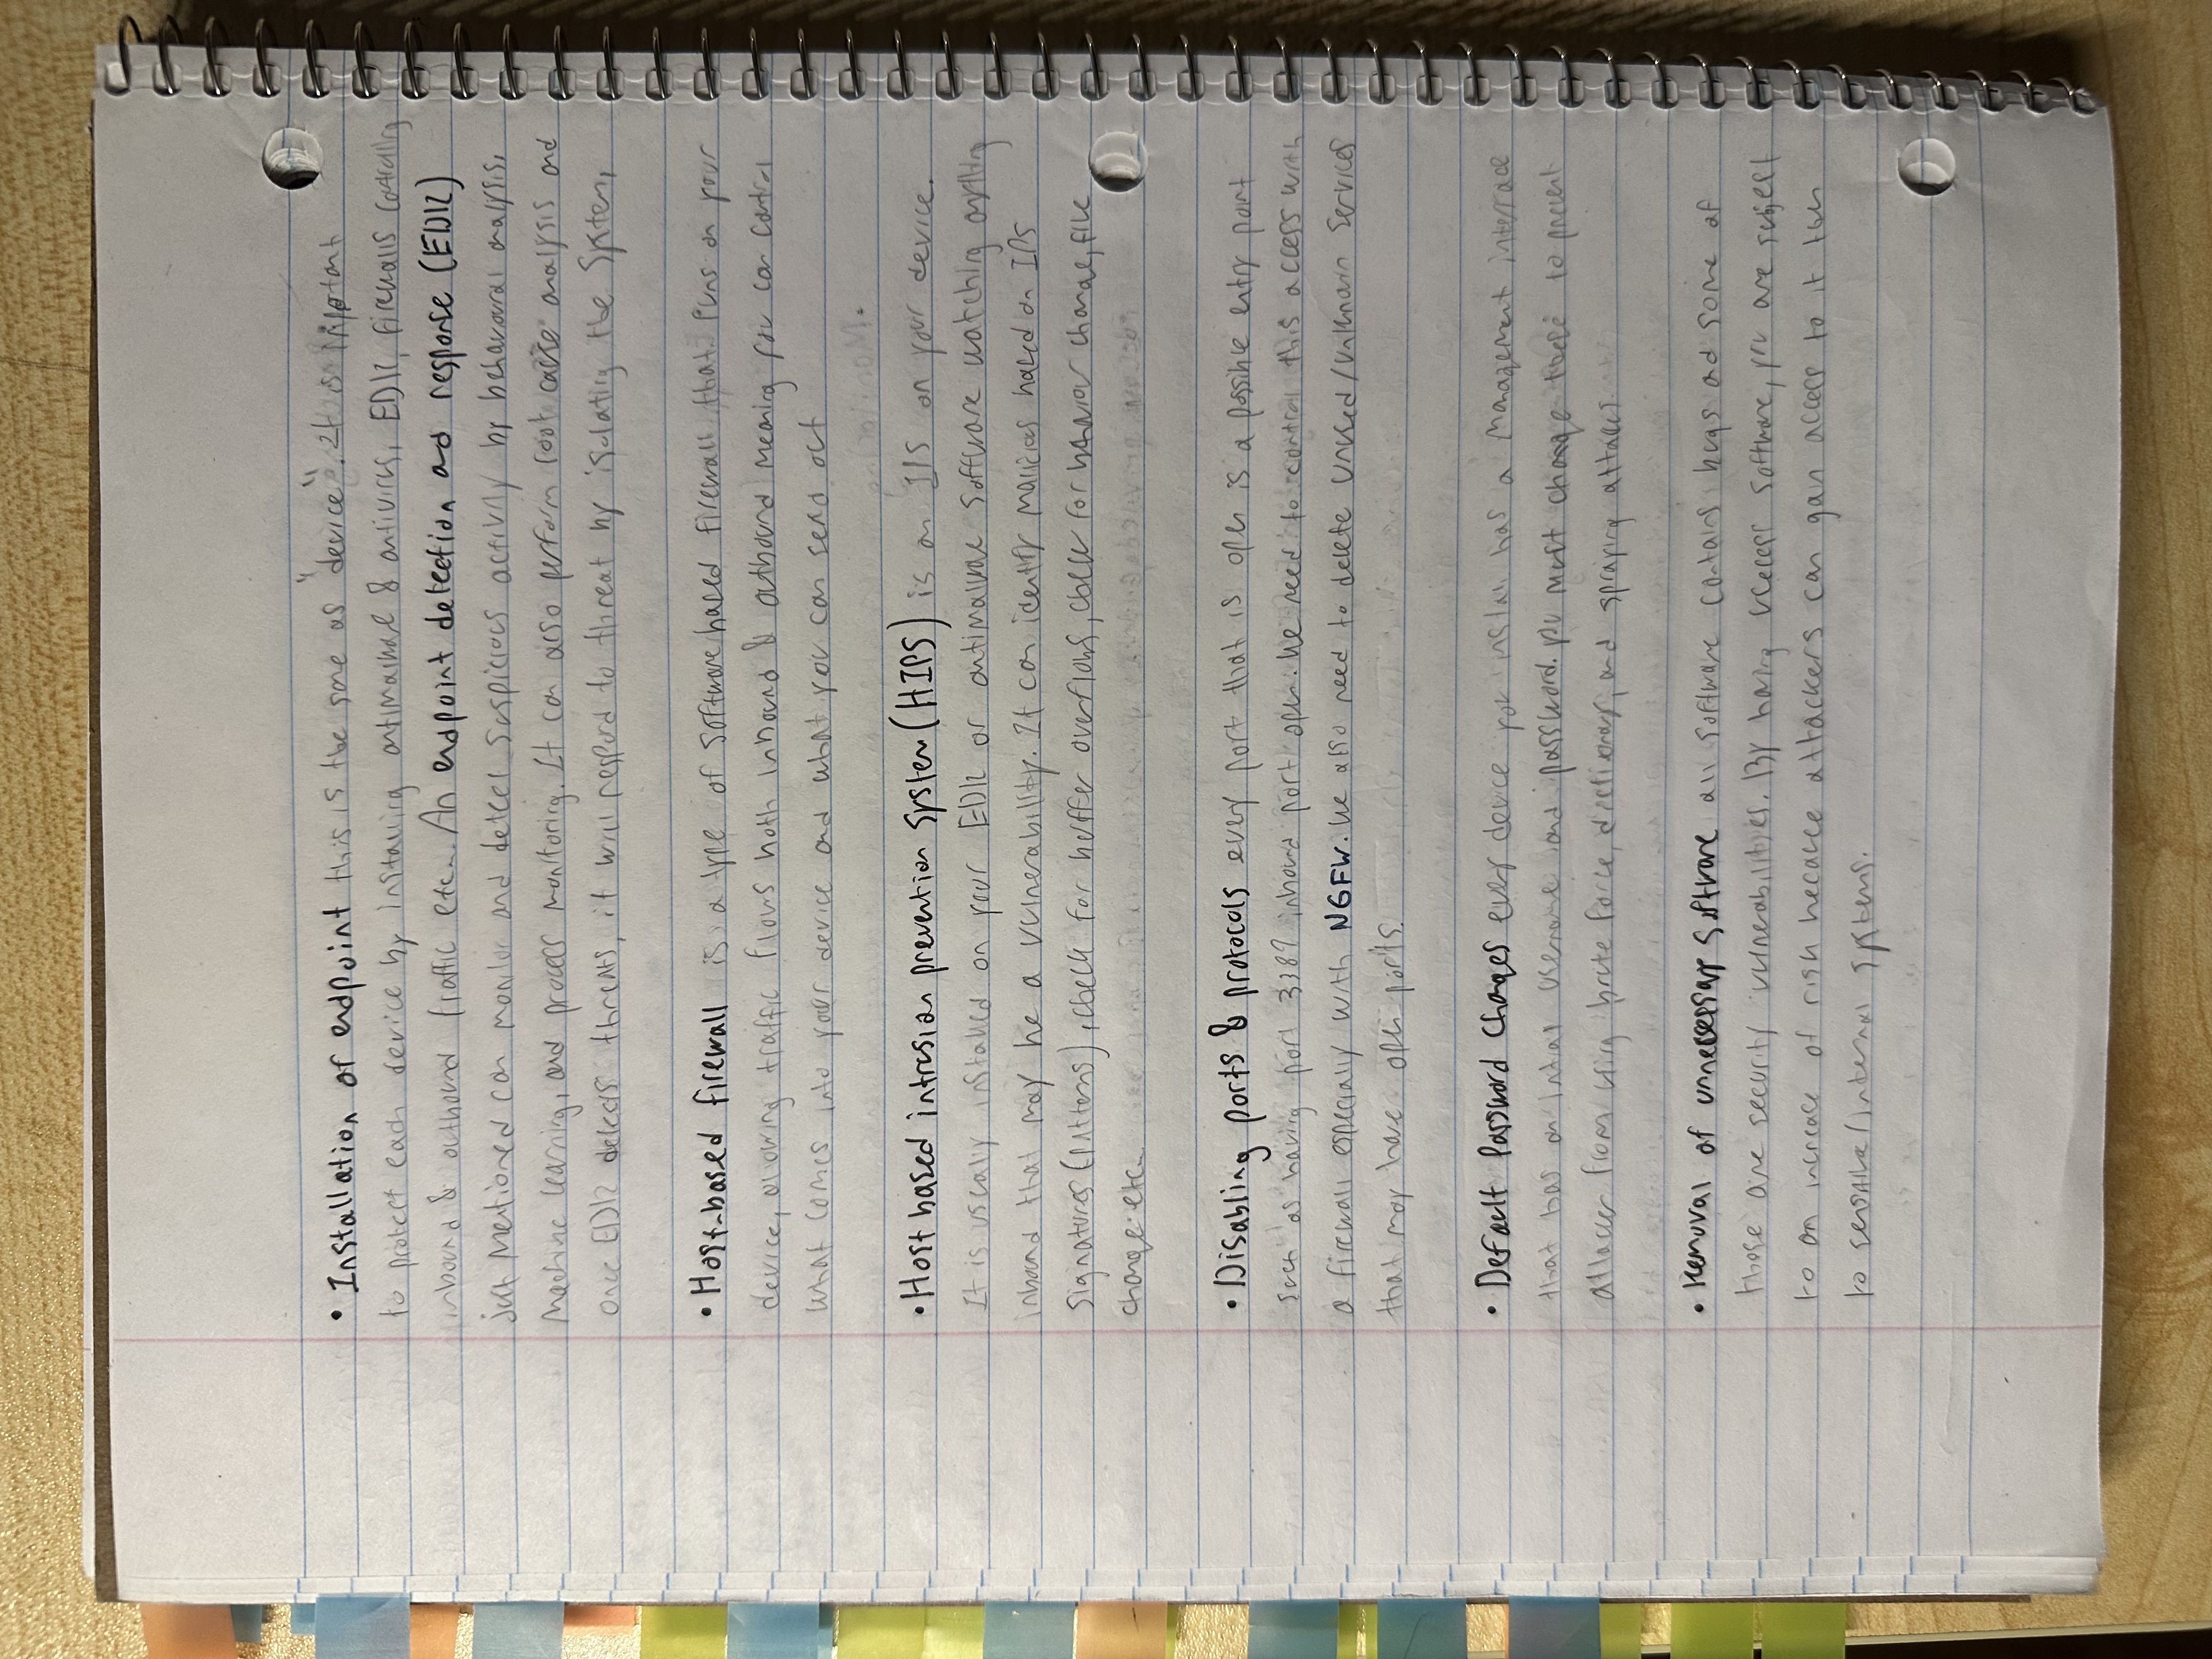 • Installation of endpoint this is the same as "device". It is important
to protect each device by installing antimalware & antivirus, EDR, firewalls controlling
inbound & outbound traffic etc.. An endpoint detection and response (EDR)
just mentioned can monitor and detect suspicious activity by behavoural analysis,
machine learning, and process monitoring. It can also perform root cause analysis and
once EDR detects threats, it will respond to threat by isolating the system,
• Host-based firewall is a type of software based firewall that runs on your
device, allowing traffic flows both inbound & outbound meaning you can control
what comes into your device and what you can send out
• Host based intrusion prevention system (HIPS) is an IPS on your device.
It is usually installed on your EDR or antimalware software watching anything
inbound that may be a vulnerability. It can identify malicious based on IPS
signatures (patterns), check for buffer overflows, check for behavior change, file
change etc..
• Disabling ports & protocols every port that is open is a possible entry point
such as having port 3389 inbound port open. We need to control this access with
a firewall especially with NGFW. We also need to delete unused/unknown services
that may have open ports.
• Default Password Changes every device you install has a management interface
that has an intial username and password. you must change these to prevent
attacker from using brute force, dictionary, and spraying attacks.
• Removal of unnecessary software all software contains bugs and some of
those are security vulnerabilities. By having useless software, you are subject
to an increase of risk because attackers can gain access to it then
to sensitive/internal systems.